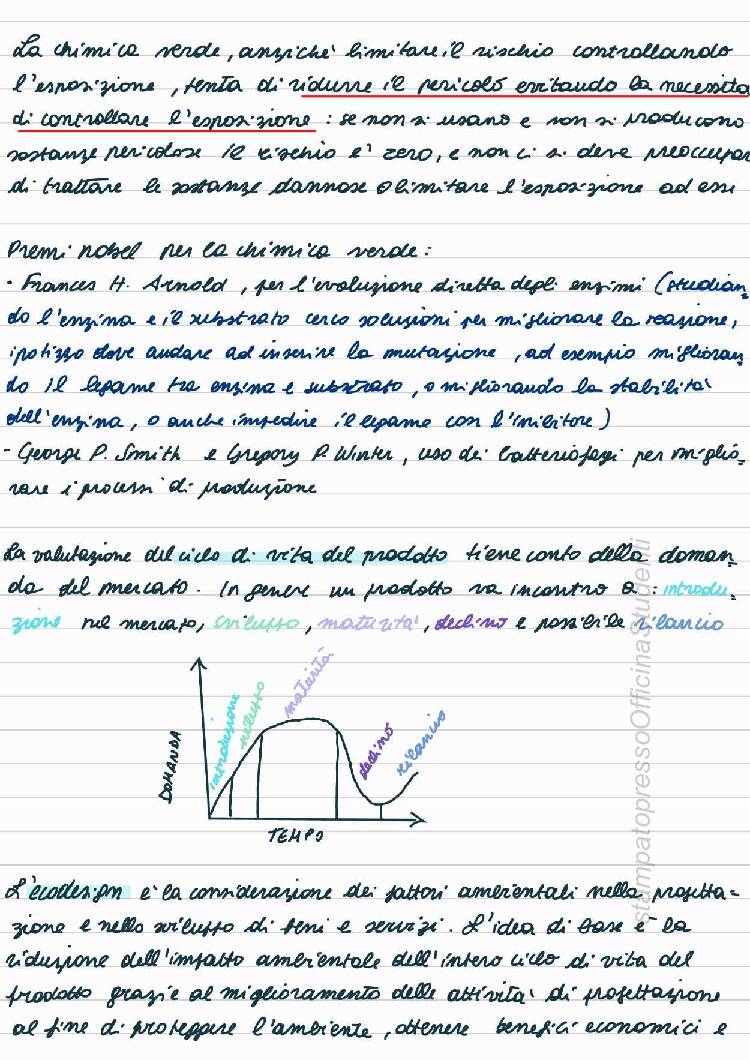 La chimica verde, anziché limitare il rischio controllando
l'esposizione, tenta di ridurre il pericolo evitando la necessità
di controllare l'esposizione: se non si usano e non si producono
sostanze pericolose il rischio è zero, e non ci si deve preoccupar
di trattare le sostanze dannose o limitare l'esposizione ad essi
Premi nobel per la chimica verde:
• Frances H. Arnold, per l'evoluzione diretta degli enzimi (studian=
do l'enzima e il substrato cerco soluzioni per migliorare la reazione,
ipotizzo dove andare ad inserire la mutazione, ad esempio miglioran=
do il legame tra enzima e substrato, o migliorando la stabilità
dell'enzima, o anche impedire il legame con l'inibitore)
- George P. Smith e Gregory P. Winter, uso dei batteriofagi per miglio=
rare i processi di produzione
La valutazione del ciclo di vita del prodotto tiene conto della doman=
da del mercato. In genere un prodotto va incontro a: introdu=
zione nel mercato, sviluppo, maturità, declino e possibile rilancio
introduzione
sviluppo
maturità
declino
rilancio
DOMANDA
TEMPO
L'ecodesign è la considerazione dei fattori ambientali nella progetta=
zione e nello sviluppo di beni e servizi. L'idea di base è la
riduzione dell'impatto ambientale dell'intero ciclo di vita del
prodotto grazie al miglioramento delle attività di progettazione
al fine di proteggere l'ambiente, ottenere benefici economici e
stampatopressoOfficinaStudenti